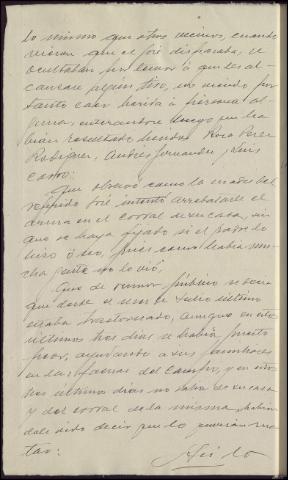 lo mismo que otros vecinos, cuando
vieron que el José disparaba, se
ocultaban por temor á que les al-
canzara algun tiro, no viendo por
tanto caer herida á persona al-
guna, enterandose luego que ha-
bian resultado heridos Rosa Perez
Rodriguez, Andrés Fernandez y Luis
Castro:
Que observó como la madre del
referido José intentó arrebatarle el
arma en el corral de su casa, sin
que se haya fijado si el padre lo
hizo ó no, pues como habia mu-
cha gente no lo vió.
Que de rumor público se decia
que desde el mes de Julio ultimo
estaba trastornado, aunque en estos
últimos tres dias se habia puesto
peor, ayudando a sus padres
en las faenas del campo, y en estos
tres últimos dias no salia de su casa
y del corral de la misma, habien-
dole oido decir que lo querian ma-
tar: